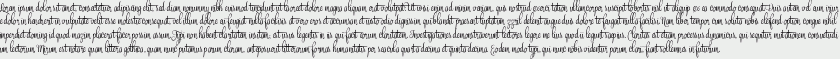 orem ipsum dolor sit amet, consectetuer adipiscing elit, sed diam nonummy nibh euismod tincidunt ut laoreet dolore magna aliquam erat volutpat. Ut wisi enim ad minim veniam, quis nostrud exerci tation ullamcorper suscipit lobortis nisl ut aliquip ex ea commodo consequat. Duis autem vel eum iriure
dolor in hendrerit in vulputate velit esse molestie consequat, vel illum dolore eu feugiat nulla facilisis at vero eros et accumsan et iusto odio dignissim qui blandit praesent luptatum zzril delenit augue duis dolore te feugait nulla facilisi. Nam liber tempor cum soluta nobis eleifend option congue nihil
imperdiet doming id quod mazim placerat facer possim assum. Typi non habent claritatem insitam; est usus legentis in iis qui facit eorum claritatem. Investigationes demonstraverunt lectores legere me lius quod ii legunt saepius. Claritas est etiam processus dynamicus, qui sequitur mutationem consuetudi
um lectorum. Mirum est notare quam littera gothica, quam nunc putamus parum claram, anteposuerit litterarum formas humanitatis per seacula quarta decima et quinta decima. Eodem modo typi, qui nunc nobis videntur parum clari, fiant sollemnes in futurum.